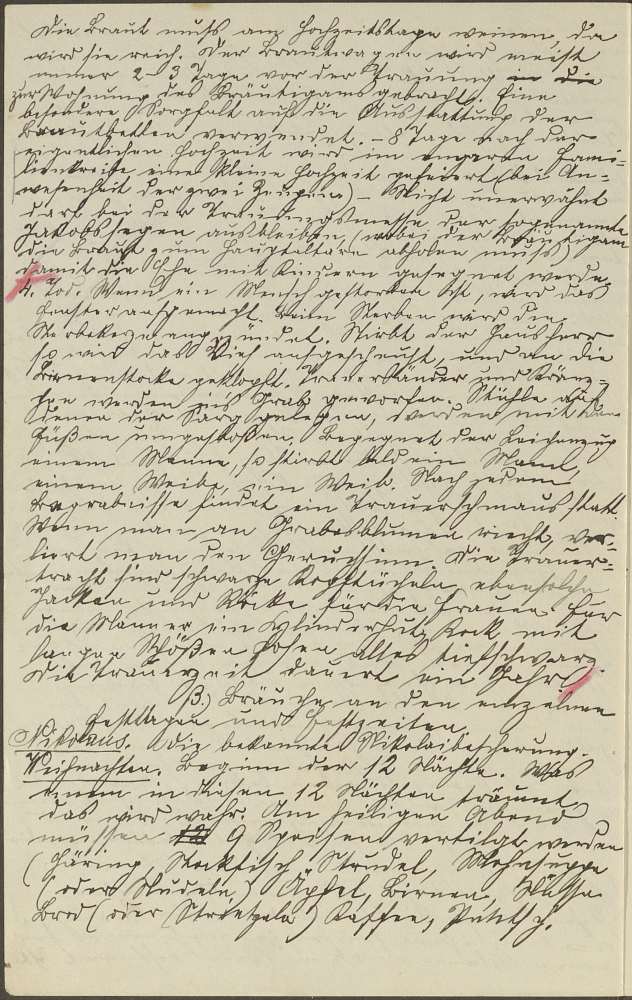 Die Braut muß am Hochzeitstage weinen, da
wird sie reich. Der Brautwagen wird meist
immer 2-3 Tage vor der Trauung in die
zur Wohnung des Bräutigams gebracht. Eine
besondere Sorgfalt auf die Ausstattung der
Brautbetten verwendet. - 8 Tage nach der
eigentlichen Hochzeit wird im engeren Fami-
lienkreise eine kleine Hochzeit gefeiert (bei An-
wesenheit der zwei Zeugen) - Nicht unerwähnt
darf bei der Trauungsmesse der sogenannte
Jakobssegen ausbleiben, (wobei der Bräutigam
die Braut zum Hauptaltare abholen muß)
damit die Ehe mit Kindern gesegnet werde.
4. Tod. Wenn ein Mensch gestorben ist, wird das
Fenster aufgemacht. Beim Sterben wird die
Sterbekerze angezündet. Stirbt der Hausherr
so wird das Vieh aufgescheucht, und an die
Bienenstöcke geklopft. Trauerbänder und Krän-
ze werden ins Grab geworfen. Stühle auf
denen der Sarg gelegen, werden mit den
Füßen umgestoßen. Begegnet der Leichenzug
einem Manne, so stirbt bald ein Mann,
einem Weibe, ein Weib. Nach jedem
Begräbnisse findet ein Trauerschmaus statt.
Wenn man an Grabesblumen riecht, ver-
liert man den Geruchsinn. Die Trauer-
tracht sind schwarze Kopftücheln, ebensolche
Jacken und Röcke für die Frauen. Für
die Männer ein Zylinderhut, Rock mit
langen Schößen, Hosen, alles tiefschwarz.
Die Trauerzeit dauert ein Jahr.
B.) Bräuche an den einzelnen
Festtagen und Festzeiten.
Nikolaus. Die bekannte Nikolaibescherung.
Weihnachten. Beginn der 12 Nächte. Was
einem in diesen 12 Nächten träumt,
das wird wahr. Am heiligen Abend
müssen 9 Speisen vertilgt werden
(Häring, Stockfisch, Strudel, Mohnsuppe
(oder Nudeln,) Äpfel, Birnen, Nüsse
Brod (oder Strietzeln) Kaffee, Putsch.